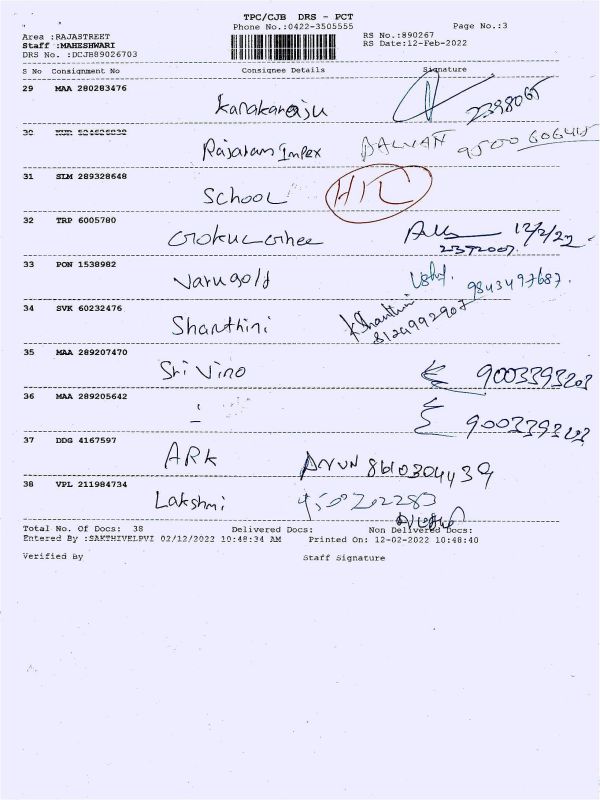 TPC/CJB DRS - PCT
Phone No.:0422-3505555
Page No.:3
Area :RAJASTREET
RS No.:890267
Staff :MAHESHWARI
RS Date:12-Feb-2022
DRS No. :DCJB89026703
S No Consignment No Consignee Details Signature
29 MAA 280283476 Kanakaraju 2398065
30 Rajaram Impex SALVAN
31 SLM 289328648 School
32 TRP 6005780 12/2/22
33 PON 1538982 Varugold 9843497687.
34 SVK 60232476 Shanthini K Shanthini
8124992907
35 MAA 289207470 Sri Vino 9003393203
36 MAA 289205642 9003393203
37 DDG 4167597 ARK ARUN 8610304439
38 VPL 211984734 Lakshmi
Total No. Of Docs: 38 Delivered Docs: Non Delivered Docs:
Entered By :SAKTHIVELPVI 02/12/2022 10:48:34 AM Printed On: 12-02-2022 10:48:40
Verified By Staff Signature